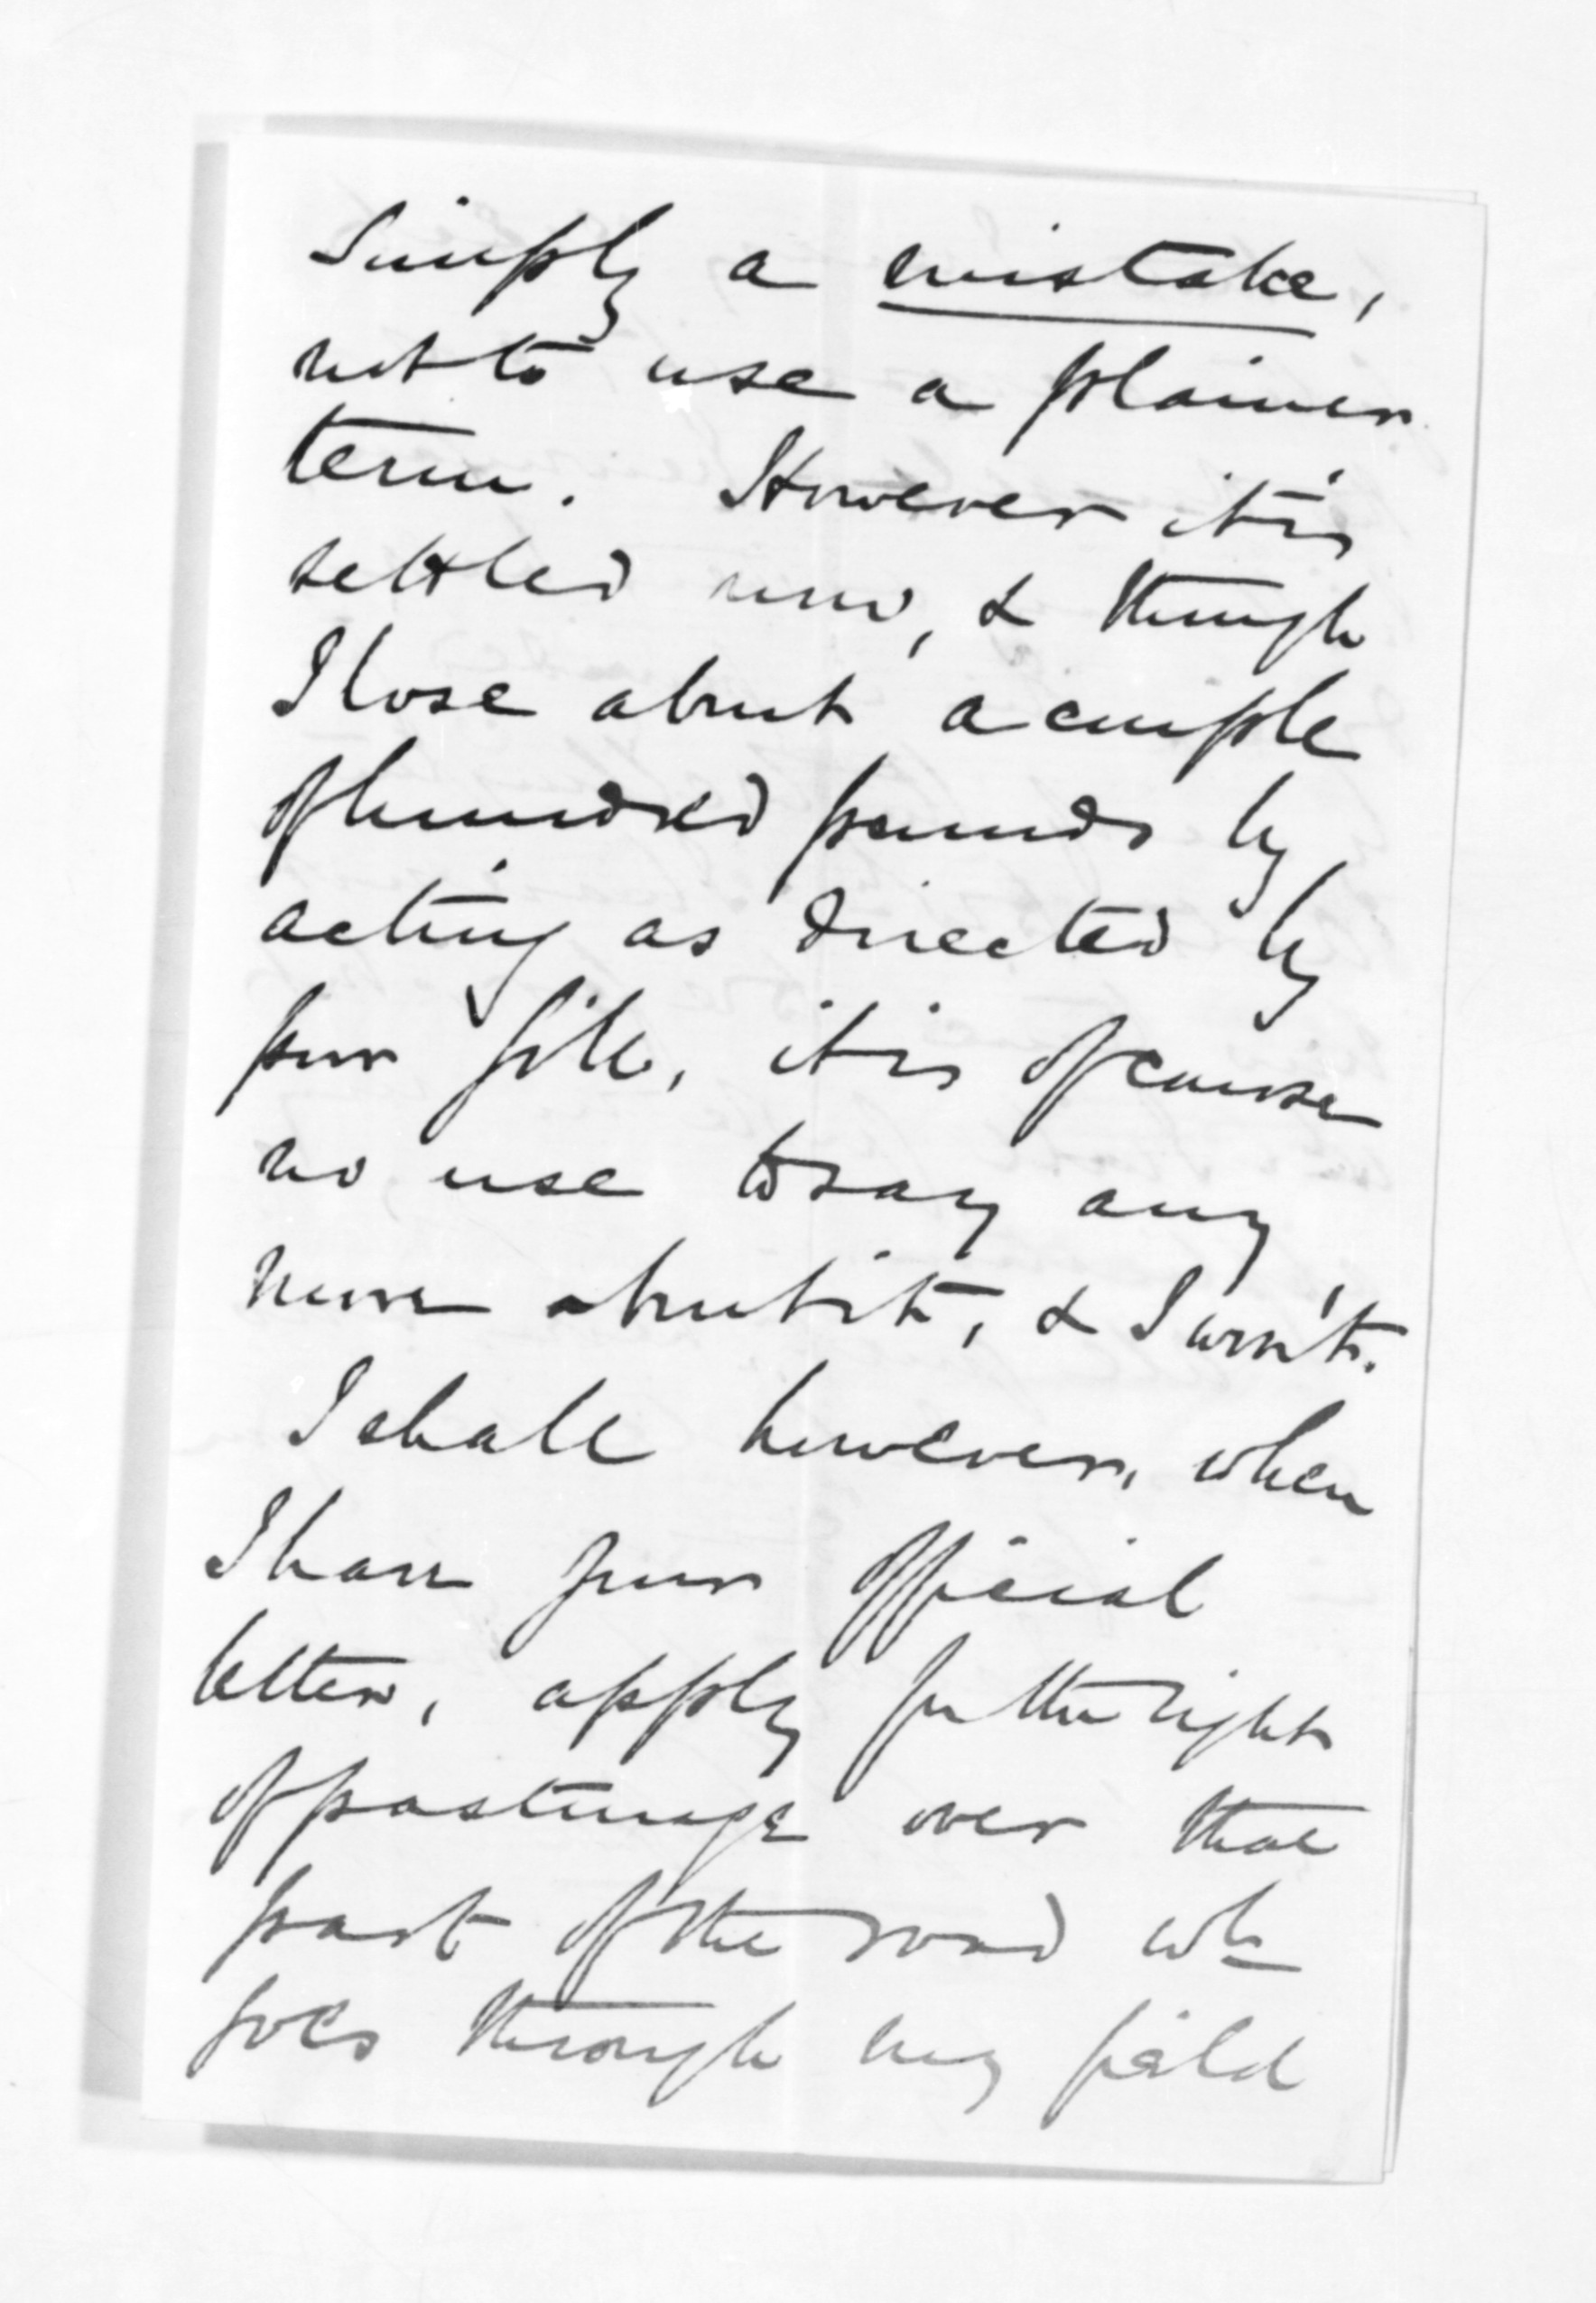 simply a mistake,
not to use a plainer
term. However it is
settled now, & though
I lose about a couple
of hundred pounds by
acting as directed by
your it is of course
no use to say any
more about it, & I won't.
I shall however, when
I have your official
letter, apply for the right
of pasturage over that
part of the road wh
goes through my field